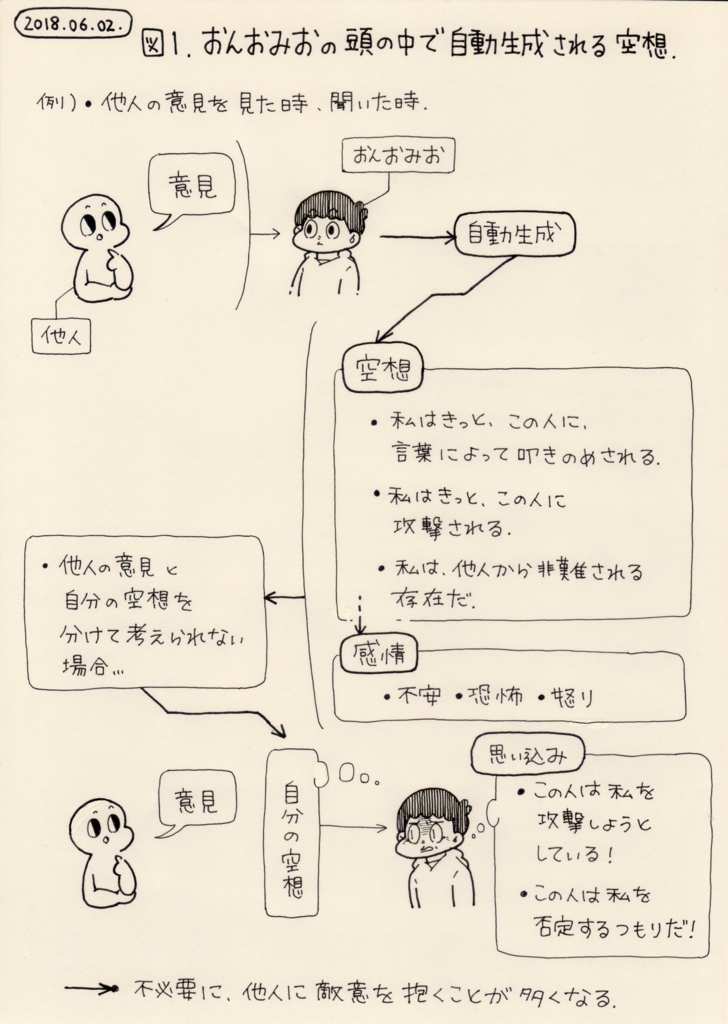 2018.06.02.
図1. おんおみおの頭の中で自動生成される空想.
例)・他人の意見を見た時、聞いた時.
おんおみお
意見
自動生成
他人
空想
・私はきっと、この人に、
言葉によって叩きのめされる.
・私はきっと、この人に
攻撃される.
・私は、他人から非難される
存在だ.
・他人の意見と
自分の空想を
分けて考えられない
場合...
感情
・不安 ・恐怖 ・怒り
思い込み
意見
自分の空想
・この人は私を
攻撃しようと
している!
・この人は私を
否定するつもりだ!
→ 不必要に、他人に敵意を抱くことが多くなる.